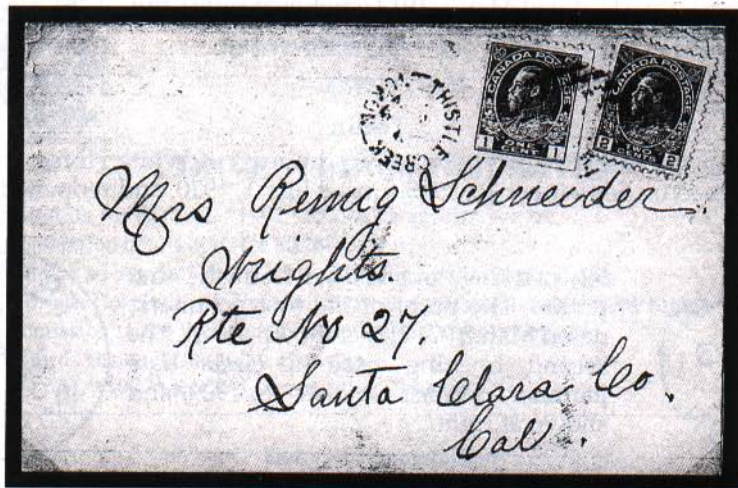 THISTLE CREEK YUKON
CANADA POSTAGE
1 ONE 1
CANADA POSTAGE
2 TWO CENTS 2
Mrs Remig Schneider
Wrights.
Rte No 27.
Santa Clara Co.
Cal.